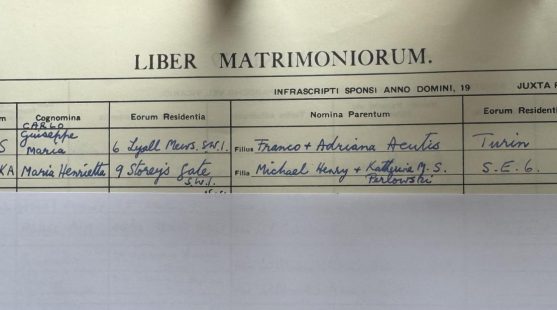 LIBER MATRIMONIORUM.
INFRASCRIPTI SPONSI ANNO DOMINI, 19 JUXTA
Cognomina Eorum Residentia Nomina Parentum Eorum Residenti
CARLO
Giuseppe
S Maria 6 Lyall Mews. S.W.1. Filius Franco + Adriana Acutis Turin
KA Maria Henrietta 9 Storey's Gate Filia Michael Henry + Katherine M. S. S.E.6.
S.W.1. Perlowski